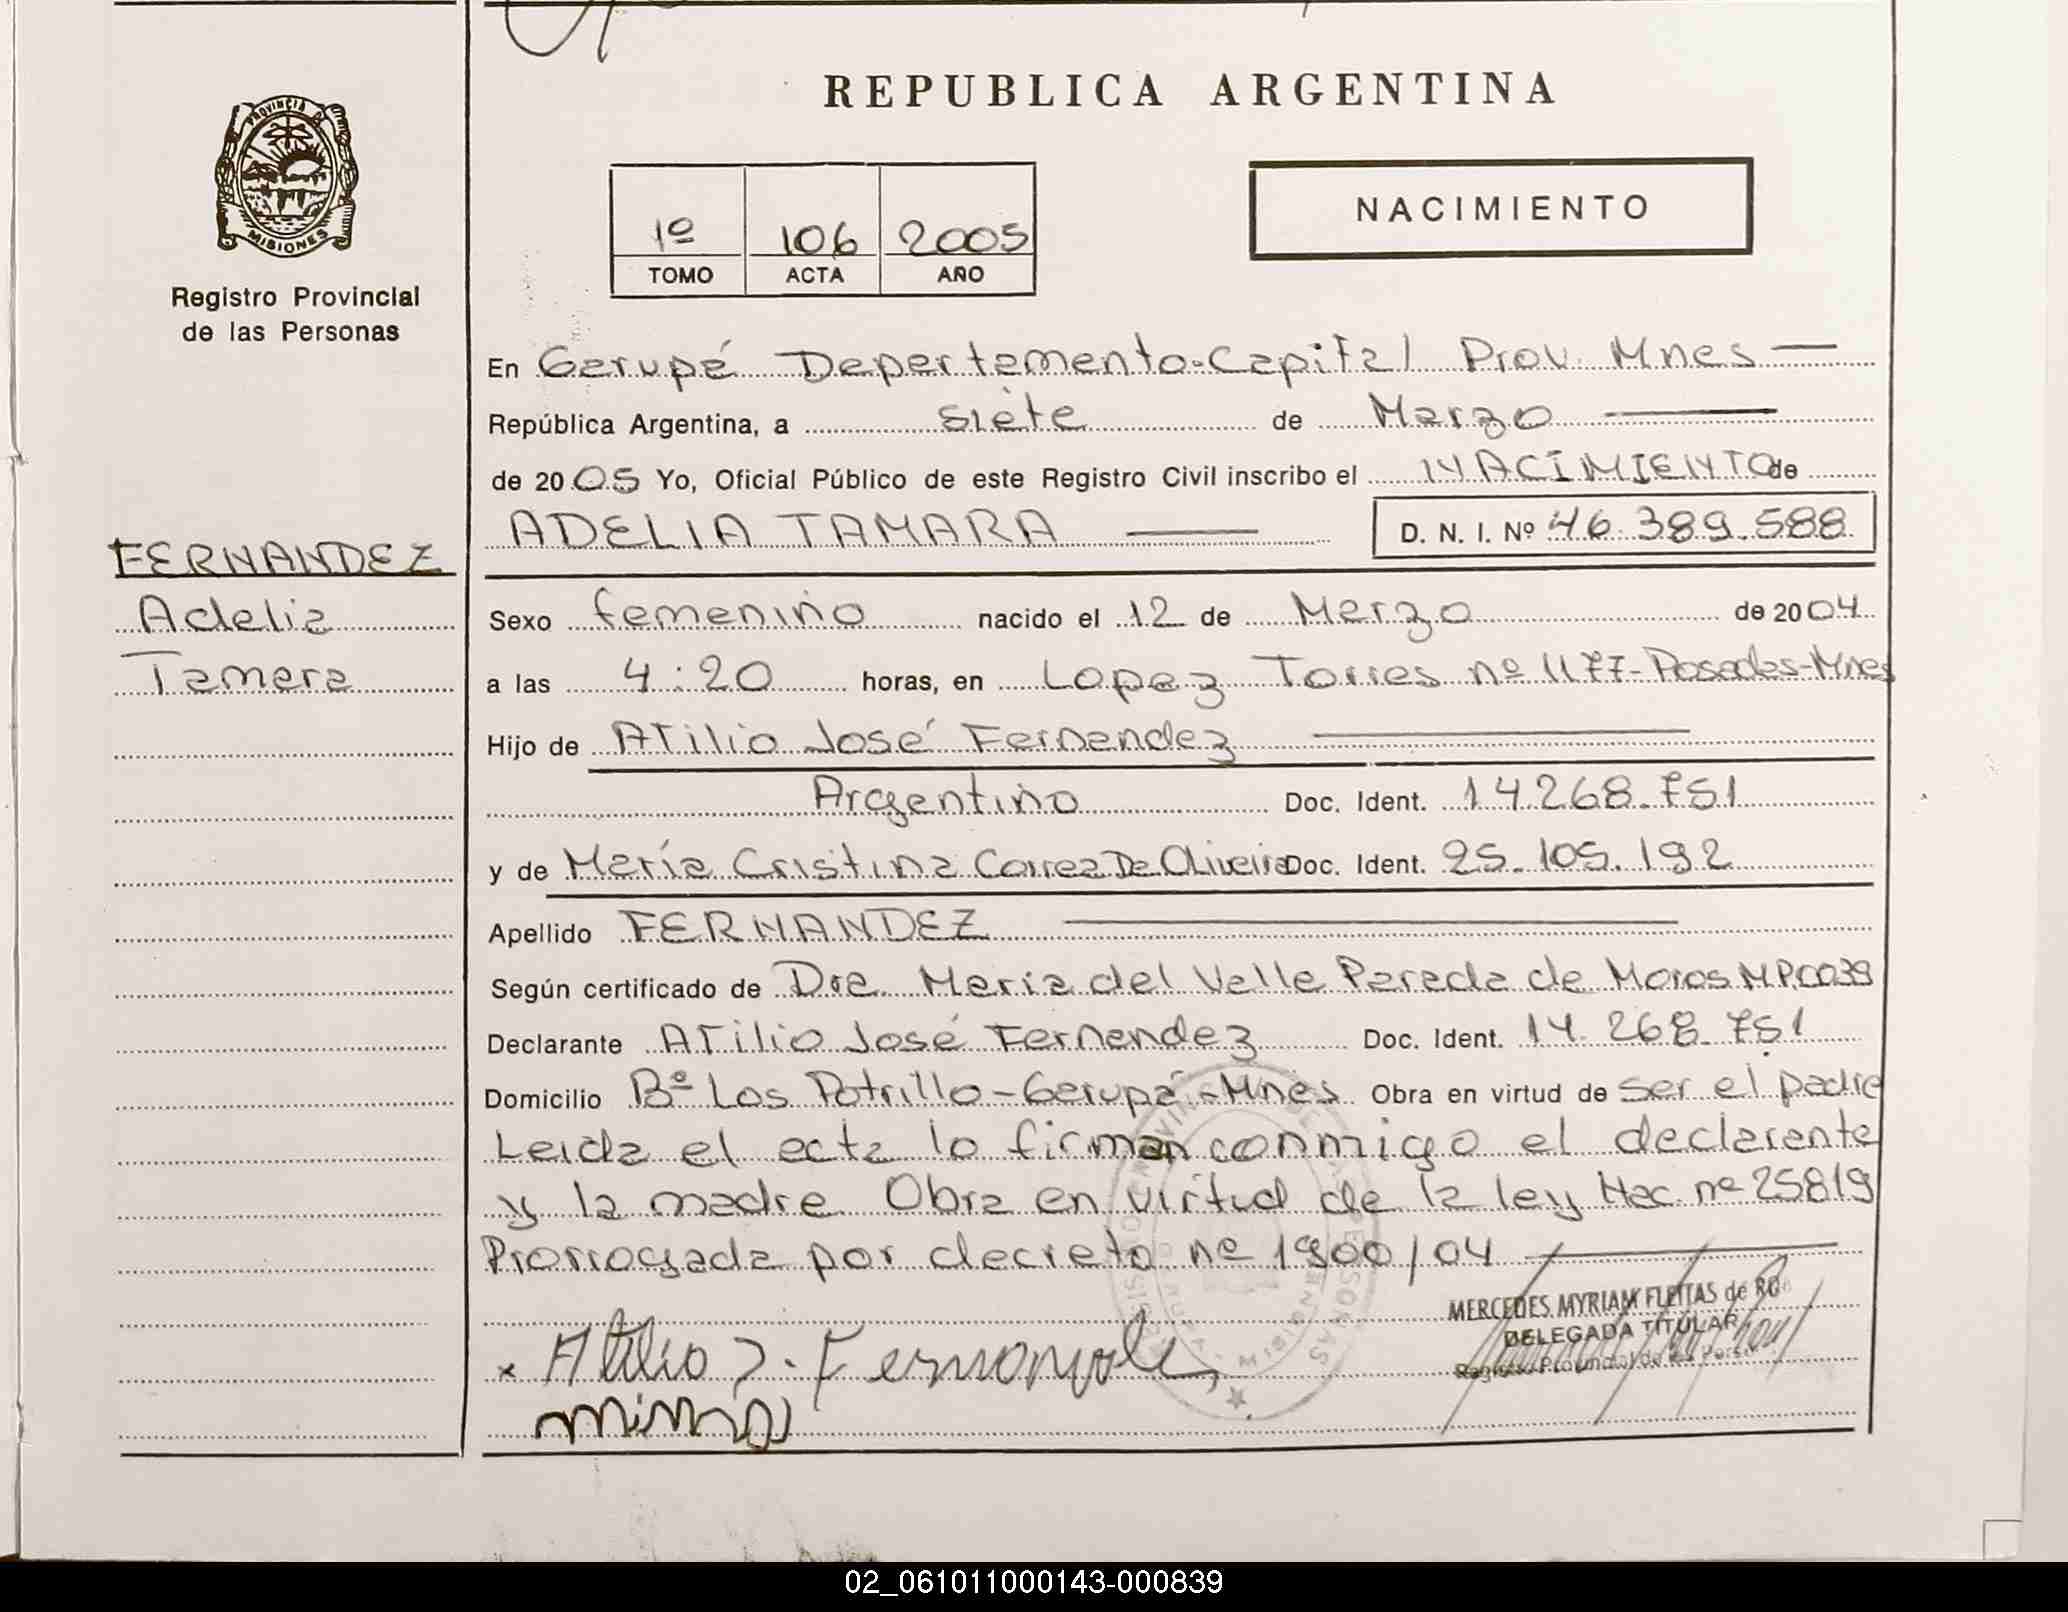 REPUBLICA ARGENTINA
PROVINCIA DE
MISIONES
Registro Provincial
de las Personas
1º 106 2005
TOMO ACTA AÑO
NACIMIENTO
En Garupá Departamento-Capital Prov. Mnes
República Argentina, a siete de Marzo
de 2005 Yo, Oficial Público de este Registro Civil inscribo el NACIMIENTO de
ADELIA TAMARA D. N. I. Nº 46.389.588
FERNANDEZ
Adelia
Tamara
Sexo femenino nacido el 12 de Marzo de 2004
a las 4:20 horas, en Lopez Torres nº 1177-Posadas-Mnes
Hijo de Atilio José Fernandez
Argentino Doc. Ident. 14.268.751
y de María Cristina Correa De Oliveira Doc. Ident. 25.105.192
Apellido FERNANDEZ
Según certificado de Dra. María del Valle Pareda de Moros MP.0039
Declarante Atilio José Fernandez Doc. Ident. 14.268.751
Domicilio Bº Los Potrillo-Garupá-Mnes Obra en virtud de ser el padre
Leida el acta lo firman conmigo el declarante
y la madre Obra en virtud de la ley Nac. nº 25819
Prorrogada por decreto nº 1900/04
MERCEDES MYRIAM FLEITAS de
DELEGADA TITULAR
Registro Provincial de las Pers
x Atilio J. Fernandez
02_061011000143-000839